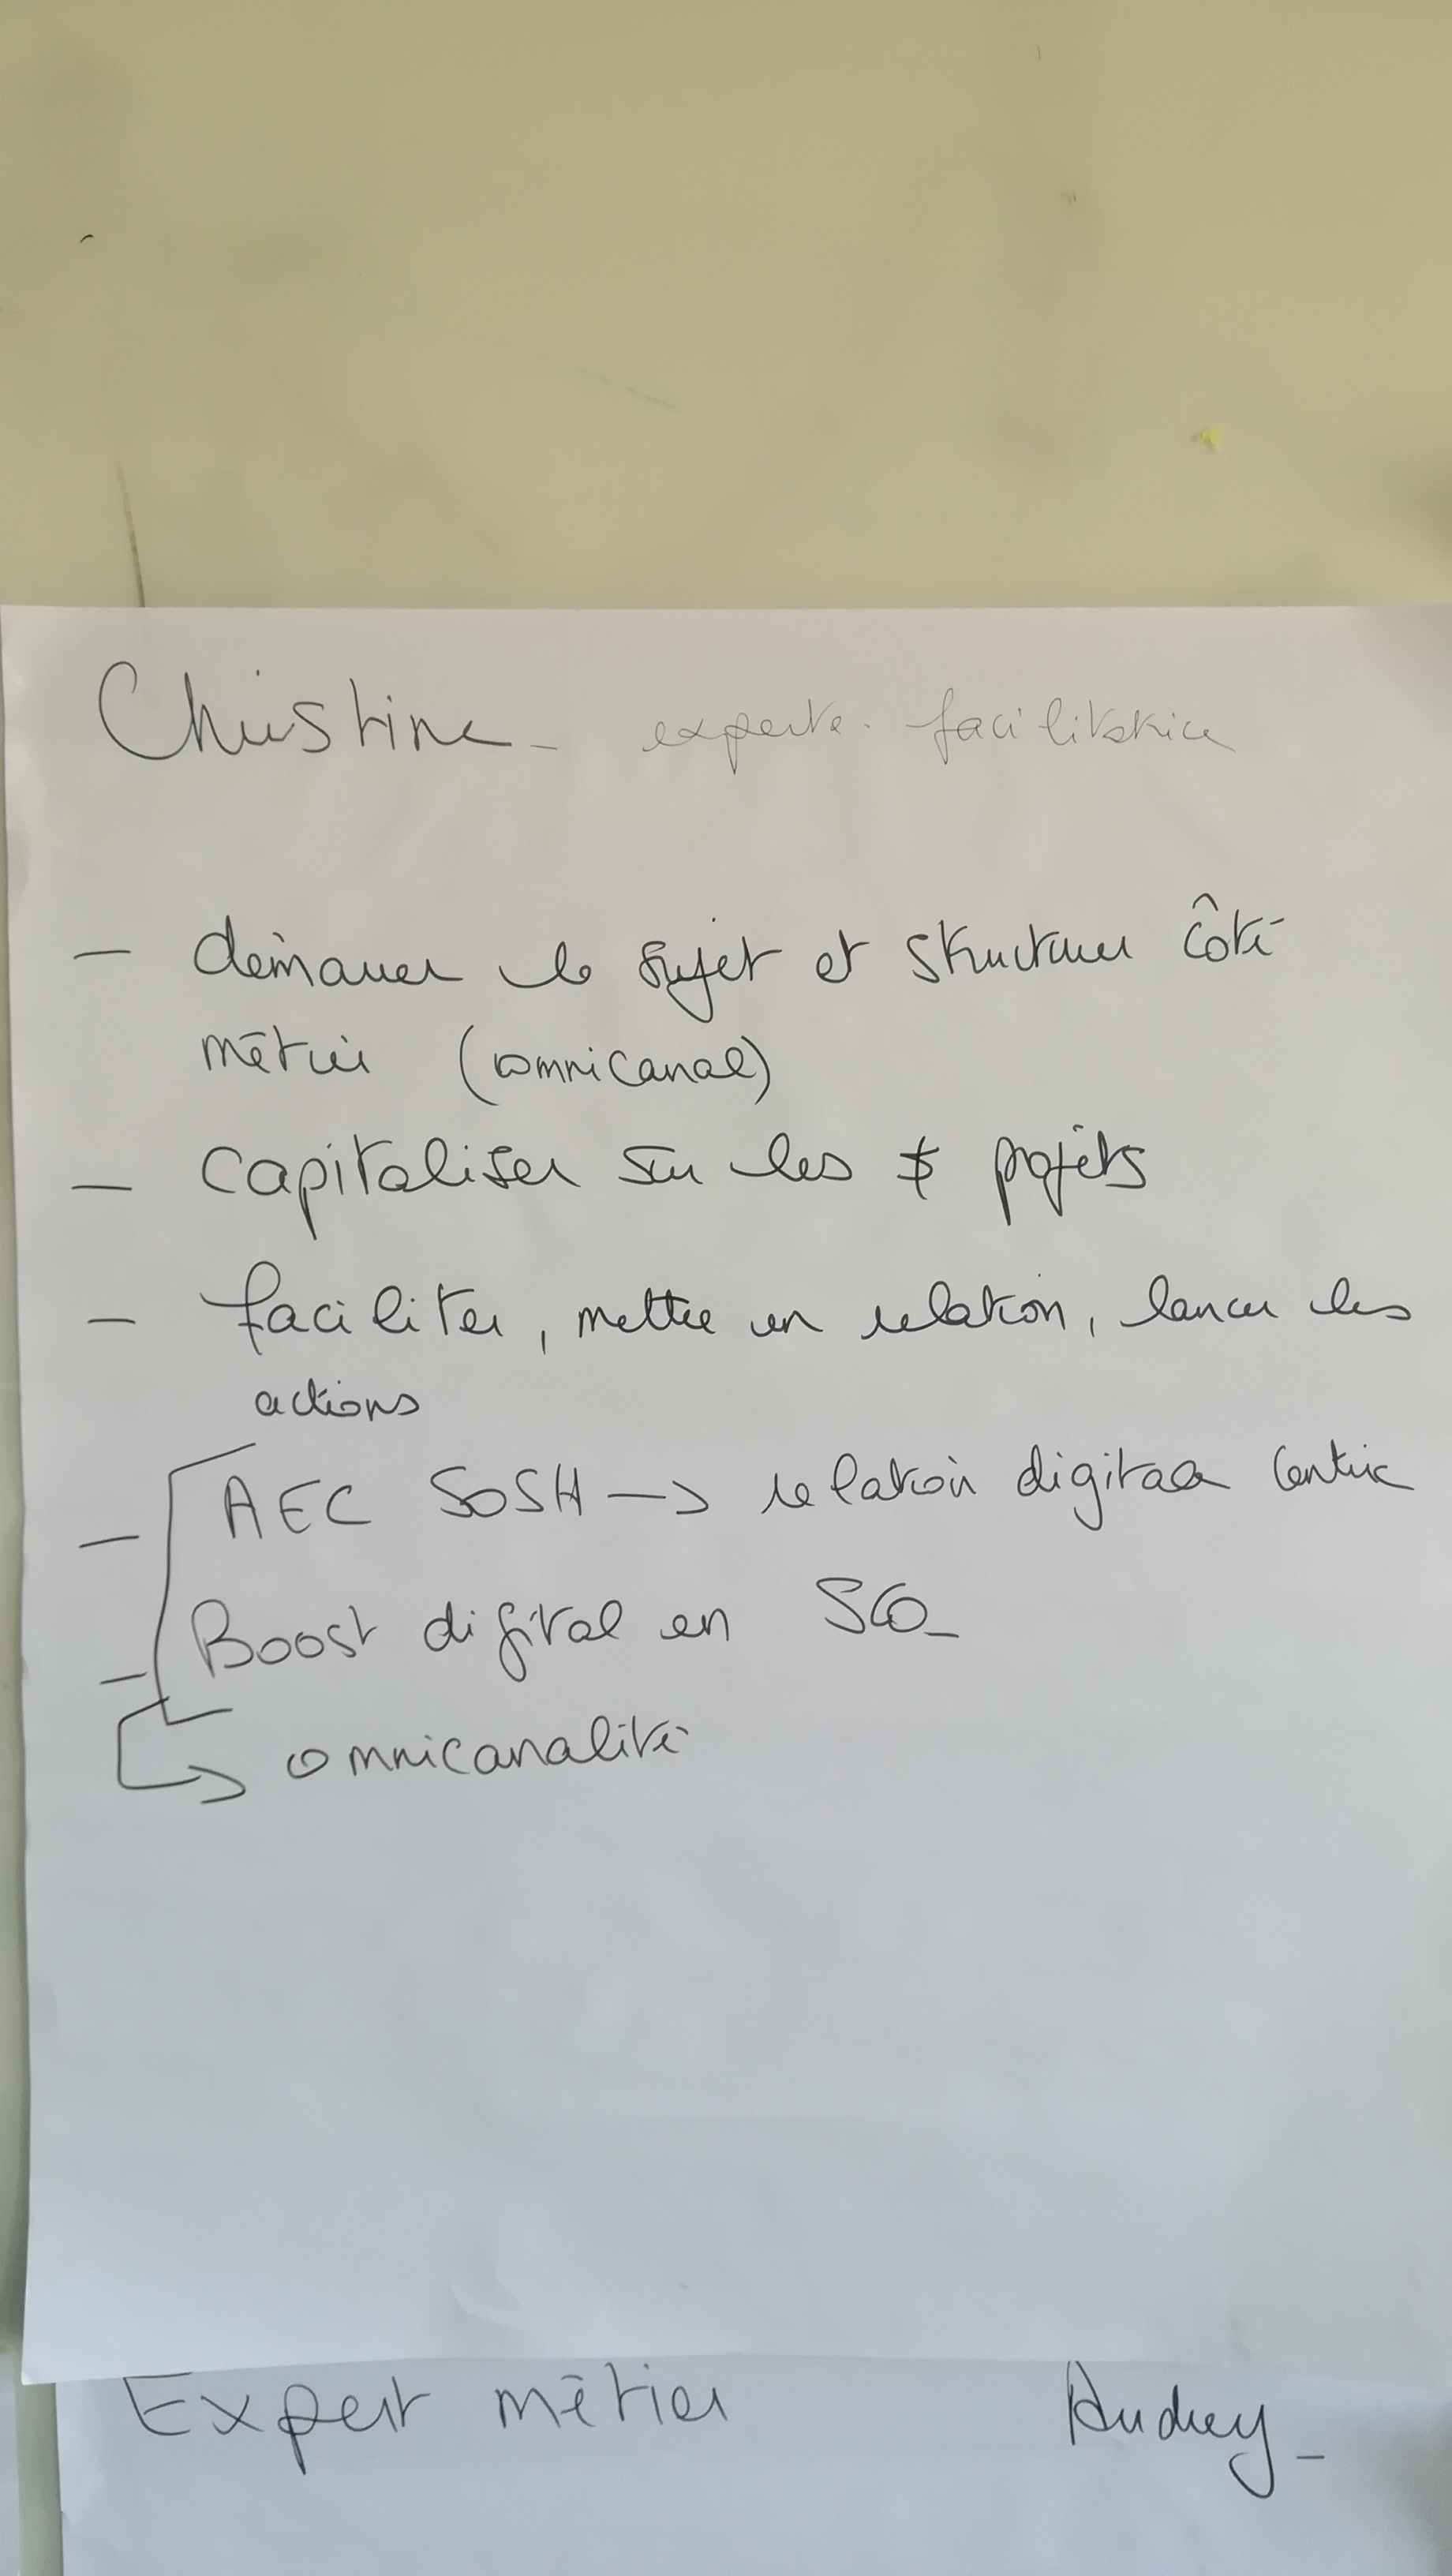 Christine - experte. facilitatrice
- démarrer le sujet et structurer côté
métier (omnicanal)
- capitaliser sur les ≠ projets
- faciliter, mettre en relation, lancer les
actions
- AEC SOSH -> relation digitale centric
- Boost digital en SCO -
-> omnicanalité
Expert métier Audrey -